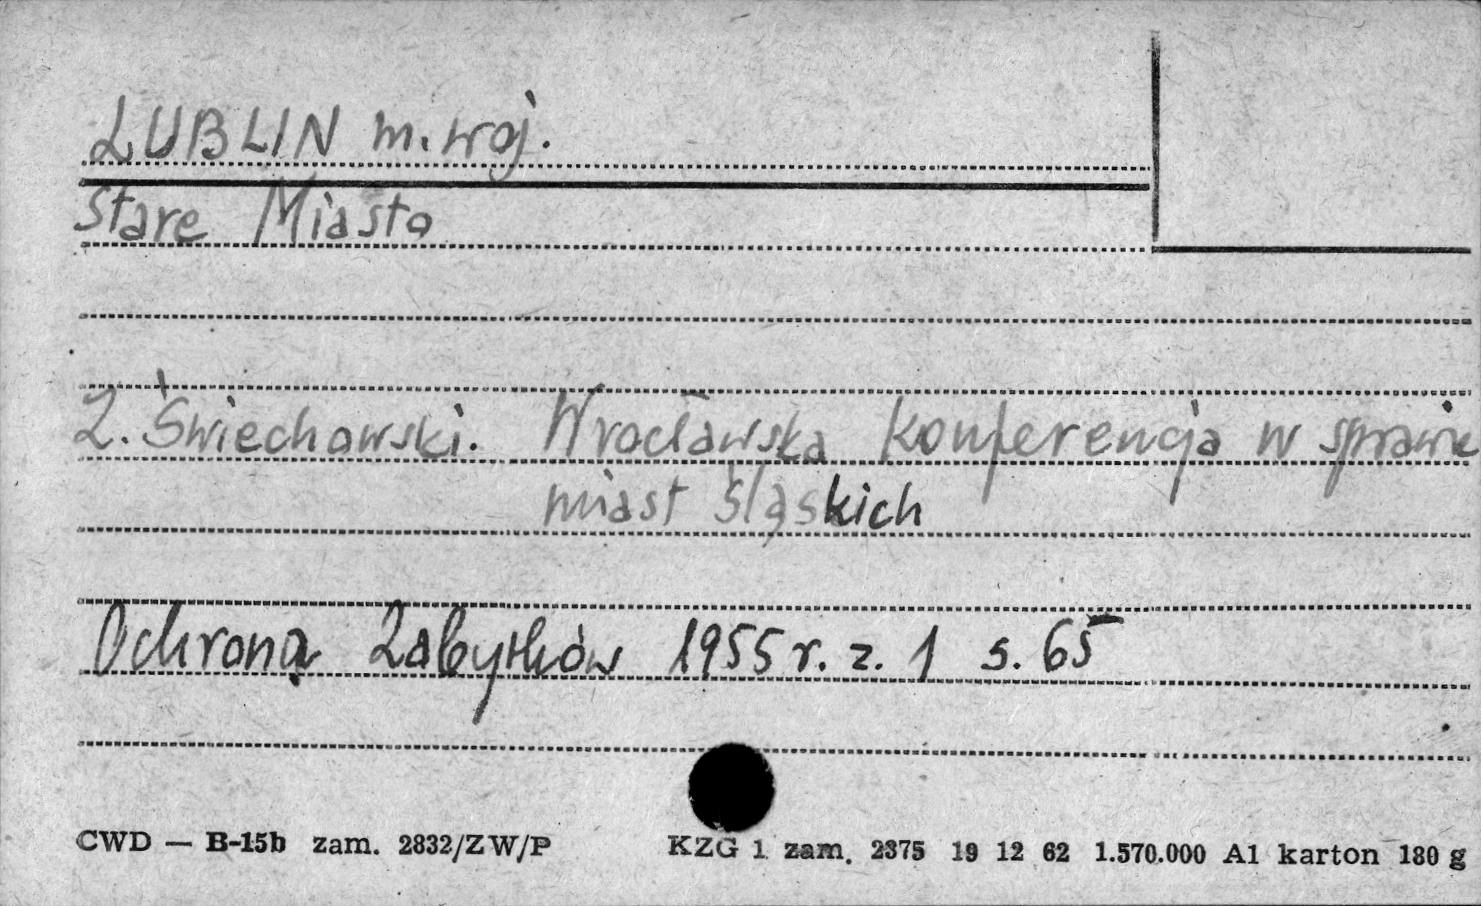 LUBLIN m. woj.
Stare Miasto
Z. Świechowski. Wrocławska Konferencja w sprawie
miast śląskich
Ochrona Zabytków 1955 r. z. 1 s. 65
CWD — B-15b zam. 2832/ZW/P KZG 1 zam. 2375 19 12 62 1.570.000 A1 karton 180 g